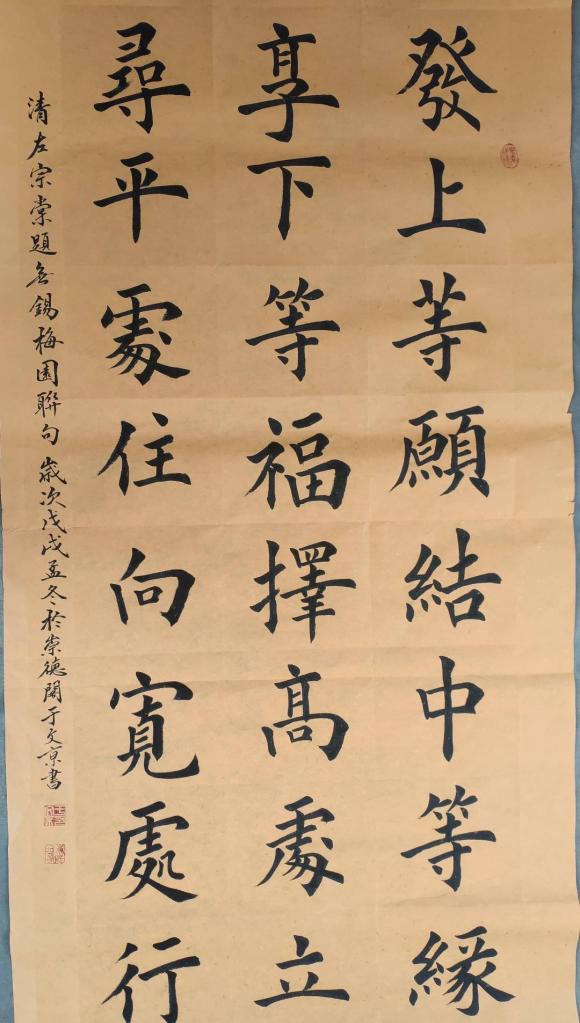 發上等願結中等緣
享下等福擇高處立
尋平處住向寬處行
清左宗棠題無錫梅園聯句 歲次戊戌孟冬於崇德閣于文京書